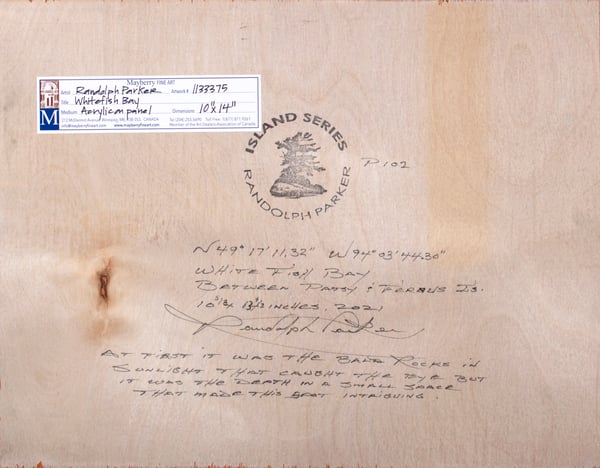 Mayberry FINE ART
Artist Randolph Parker Artwork # 1133375
Title Whitefish Bay
Medium Acrylic on panel Dimensions 10"x 14"
212 McDermot Avenue Winnipeg, MB R3B 0S3 CANADA Tel (204) 255-5690 Toll Free: 1(877) 871-9261
info@mayberryfineart.com www.mayberryfineart.com Member of the Art Dealers Association of Canada
M
ISLAND SERIES
RANDOLPH PARKER
P102
N 49° 17' 11.32" W 94° 03' 44.30"
WHITE FISH BAY
BETWEEN PATSY & FERRUS IS.
INCHES, 2021
Randolph Parker
AT FIRST IT WAS THE BARE ROCKS IN
SUNLIGHT THAT CAUGHT THE EYE BUT
IT WAS THE DEPTH IN A SMALL SPACE
THAT MADE THIS SPOT INTRIGUING.